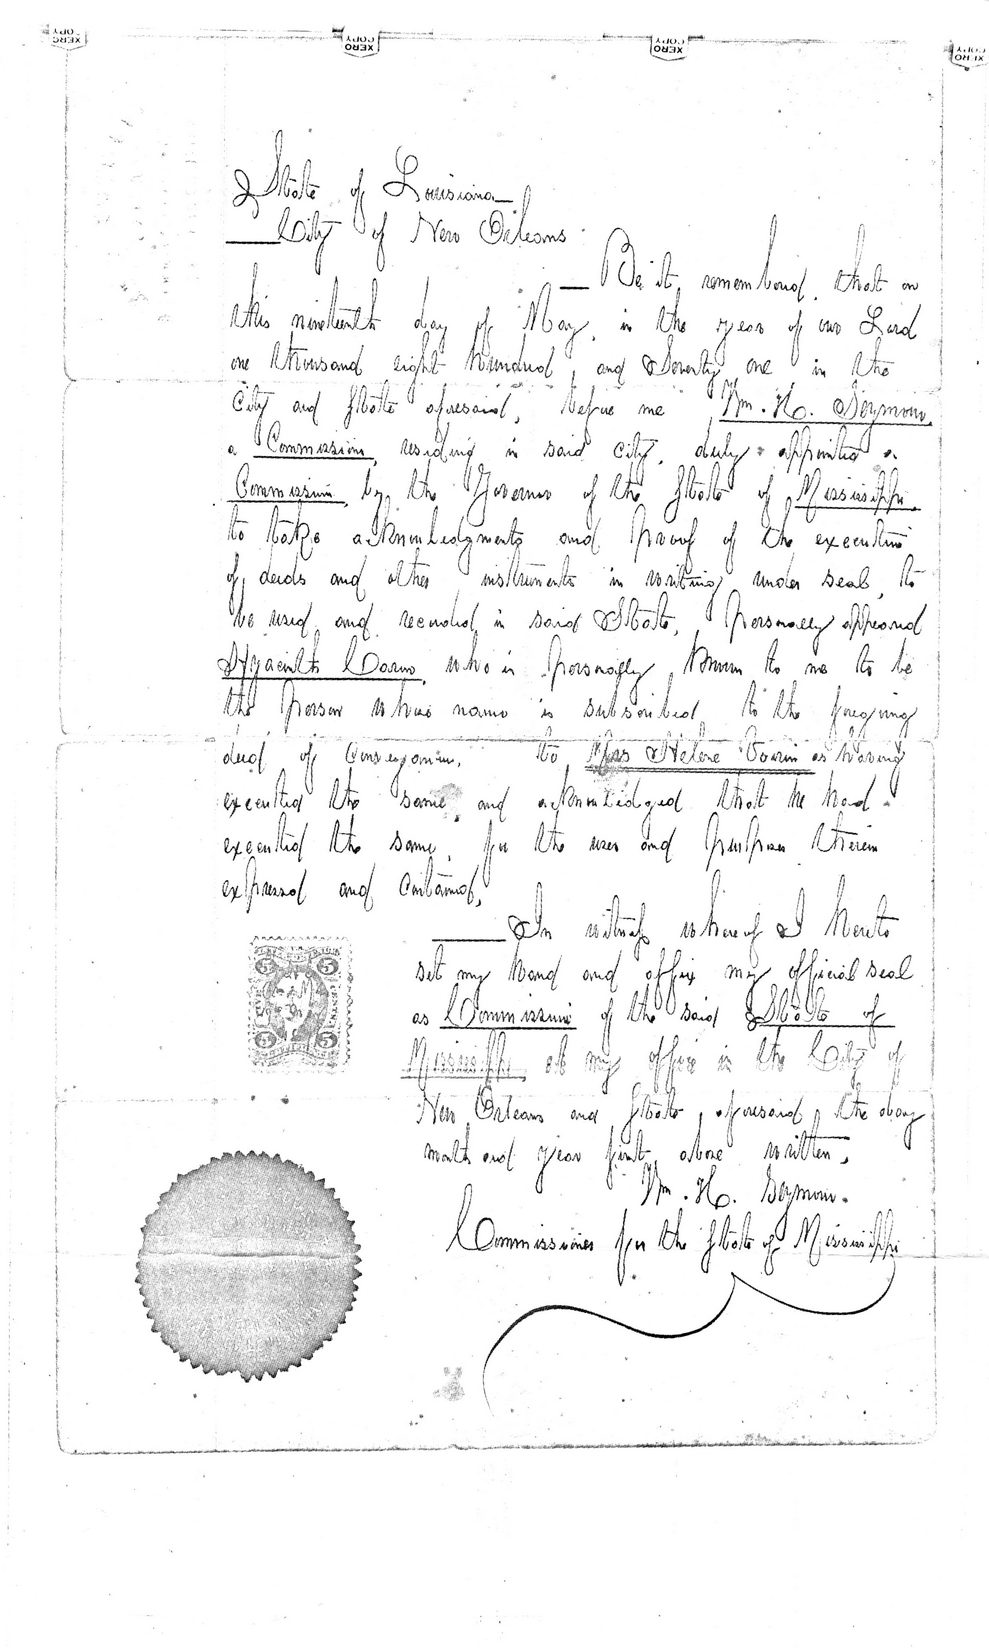 State of Louisiana
City of New Orleans
Be it remembered, that on
this nineteenth day of May, in the year of our Lord
one thousand eight hundred, and Seventy one in the
City and State aforesaid, before me Wm. H. Seymour,
a Commissioner, residing in said City, duly appointed a
Commissioner by the Governor of the State of Mississippi,
to take acknowledgments and proof of the execution
of deeds and other instruments in writing under seal, to
be used and recorded in said State, personally appeared
Hyacinth who is personally known to me to be
the person whose name is subscribed to the foregoing
deed of Conveyance, to Mrs Helene as having
executed the same, and acknowledged that he had
executed the same, for the uses and purposes therein
expressed and contained,
In witness whereof I hereto
set my hand and affix my official seal
as Commissioner of the said State of
Mississippi, at my office in the City of
New Orleans and State aforesaid, the day
month and year first above written.
Wm. H. Seymour.
Commissioner for the State of Mississippi
5 5
5 5
XERO
COPY
XERO
COPY
XERO
COPY
XERO
COPY